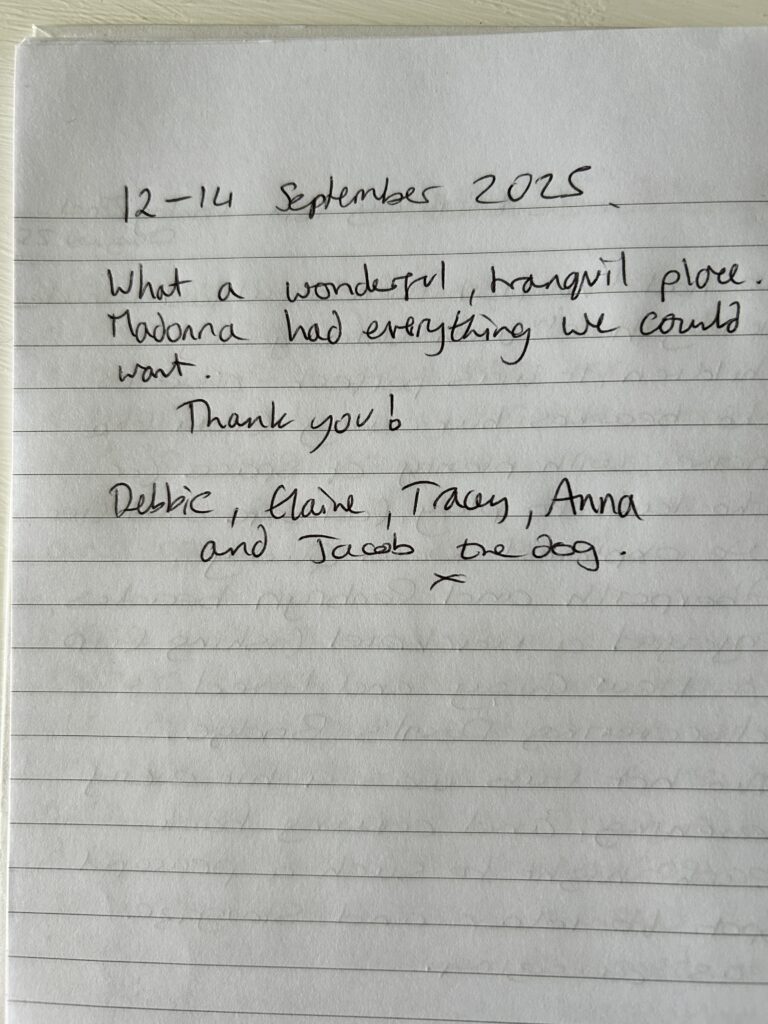 12-14 September 2025.
What a wonderful, tranquil place.
Madonna had everything we could
want.
Thank you!
Debbie, Elaine, Tracey, Anna
and Jacob the dog.
x